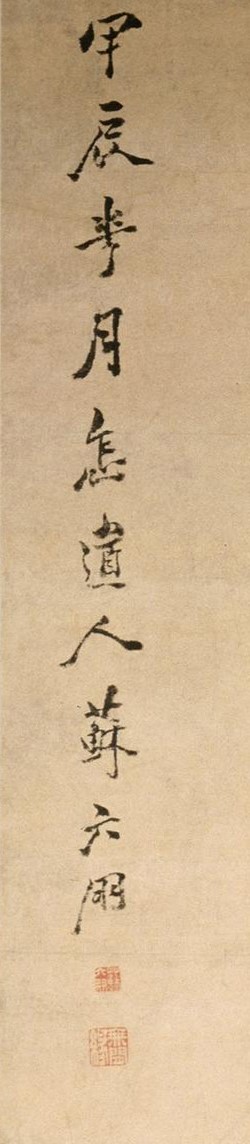 甲辰華月怎道人蘇六朋